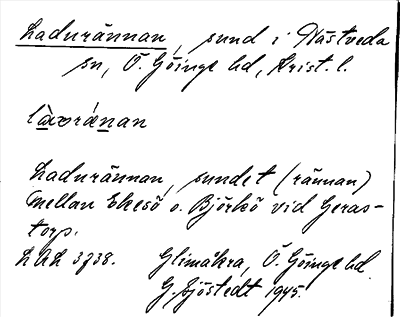 Ladurännan, sund i Hästveda
sn, Ö. Göinge hd, Krist. l.
làvoránan
Ladurännan, sundet (rännan)
mellan Ekesö o. Björkö vid Geras-
torp.
LAL 3738. Glimåkra, Ö. Göinge hd
G. Sjöstedt 1945.